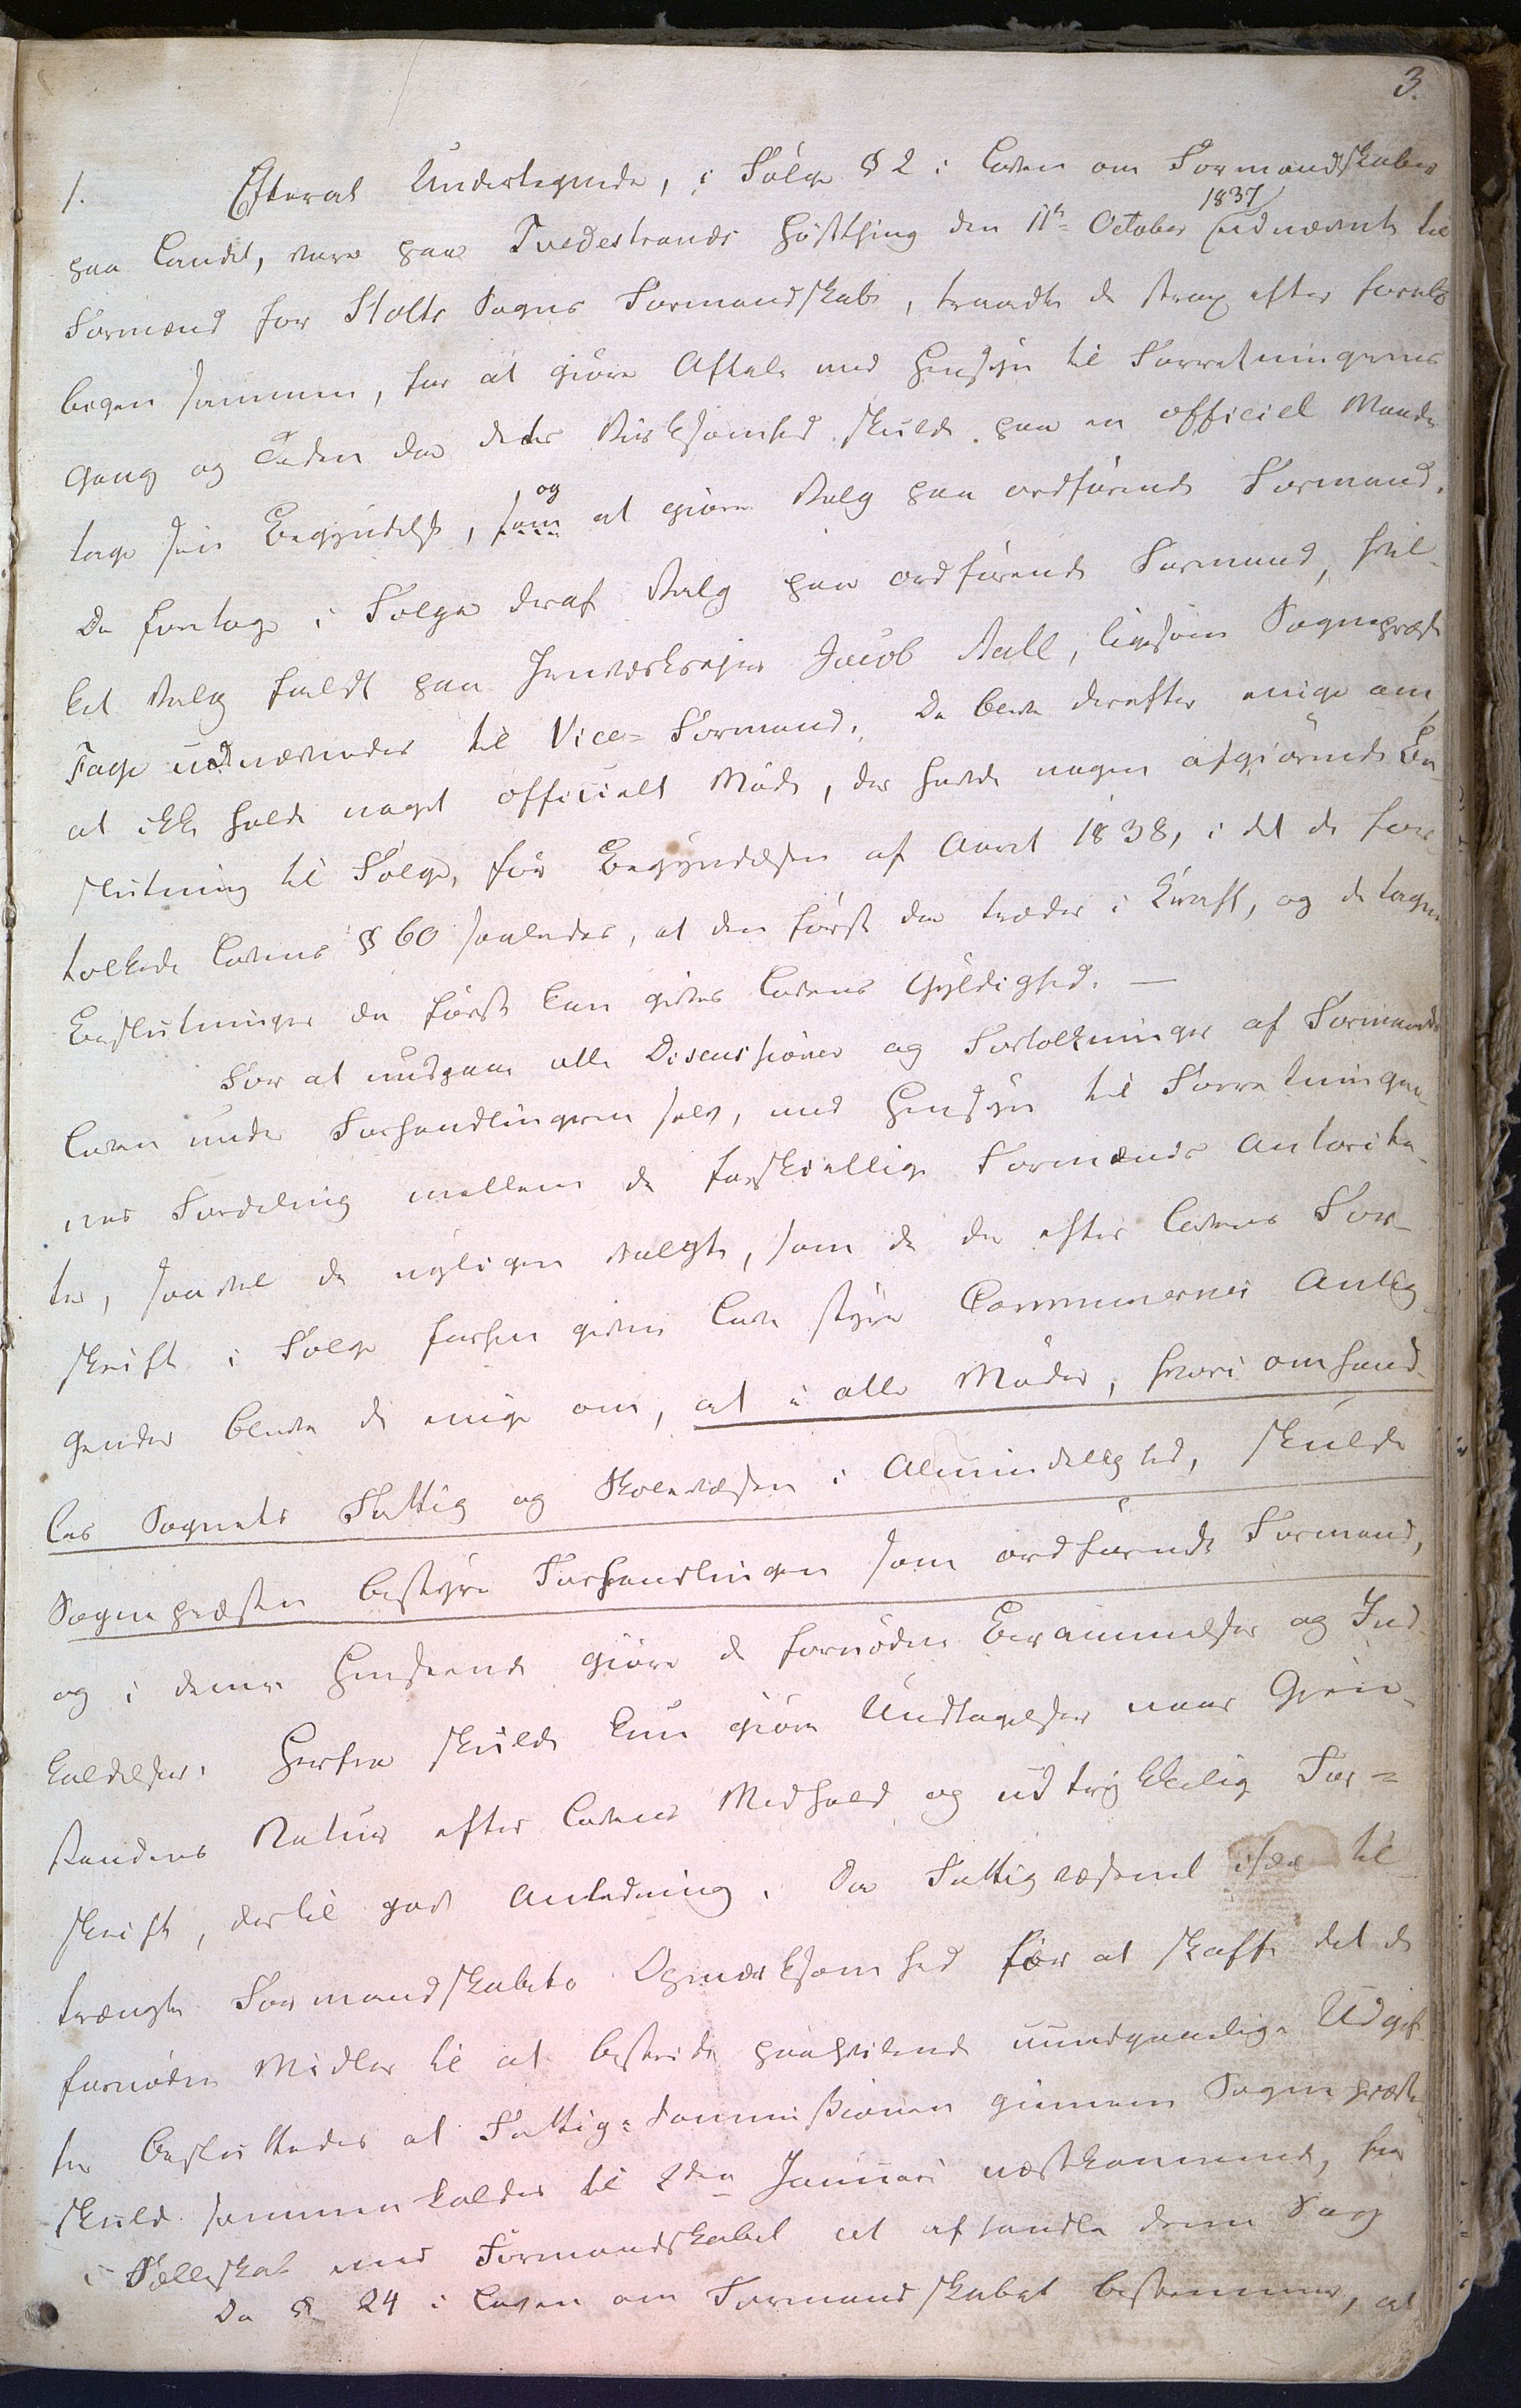 3.
1. Efterat Undertegnede, i Følge § 2 i Loven om Formandskaber
1837
paa Landet, vare paa Tvedestrands Høstthing den 11te October udnævnte til
Formænd for Holts Sogns Formandskab, traadte de strax efter foreløbigen
sammen, for at giøre Aftale med Hensyn til Forretningernes
Gang og Tiden da dette Virksomhed skulde paa en officiel Maade
tage sin Begyndelse, som og at giøre Valg paa ordførende Formand.
De foretoge i Følge deraf Valg paa ordførende Formand, hvilket
Valg faldt paa Jernværkseier Jacob Aall, ligesom Sognepræst
Faye udnævnedes til Vice-Formand. De bleve derefter enige om
at ikke holde noget officielt Møde, der havde nogen afgiørende Beslutning
til Følge, før Begyndelsen af Aaret 1838, i det de fortolkede
Lovens § 60 saaledes, at den først da træder i Kraft, og de tagne
Beslutninger da først kan gives Lovens Gyldighed. —
For at undgaae alle Discussioner og Fortolkninger af Formands
Loven under Forhandlingerne selv, med Hensyn til Forretningernes
Fordeling mellem de forskiellige Formænds Autoriteter,
saavel de nyligen valgte, som de der efter Lovens Forskrift
i Følge forhen givne Love styre Communernes Anliggender
bleve de enige om, at i alle Møder, hvori omhandles
Sognets Fattig og Skolevæsen i Almindelighed, skulde
Sognepræsten bestyre Forhandlingen som ordførende Formand,
og i denne Henseende giøre de fornødne Berammelser og Indkaldelser.
Herfra skulde kun giøres Undtagelser naar Gienstandens
Natur efter Lovens Medhold og udtrykkelig Forskrift,
dertil gav Anledning. Da Fattigvæsenet især tiltrængte
Formandskabets Opmærksomhed for at skaffe det de
fornødne Midler til at bestride paahvilende uundgaaelige Udgifter
besluttedes at Fattig-Commissionen giennem Sognepræsten
skulde sammenkaldes til 2den Januari næstkommende, for
i Fælleskab med Formandskabet at afhandle denne Sag
Da § 24 i Loven om Formandskabet bestemmer, at